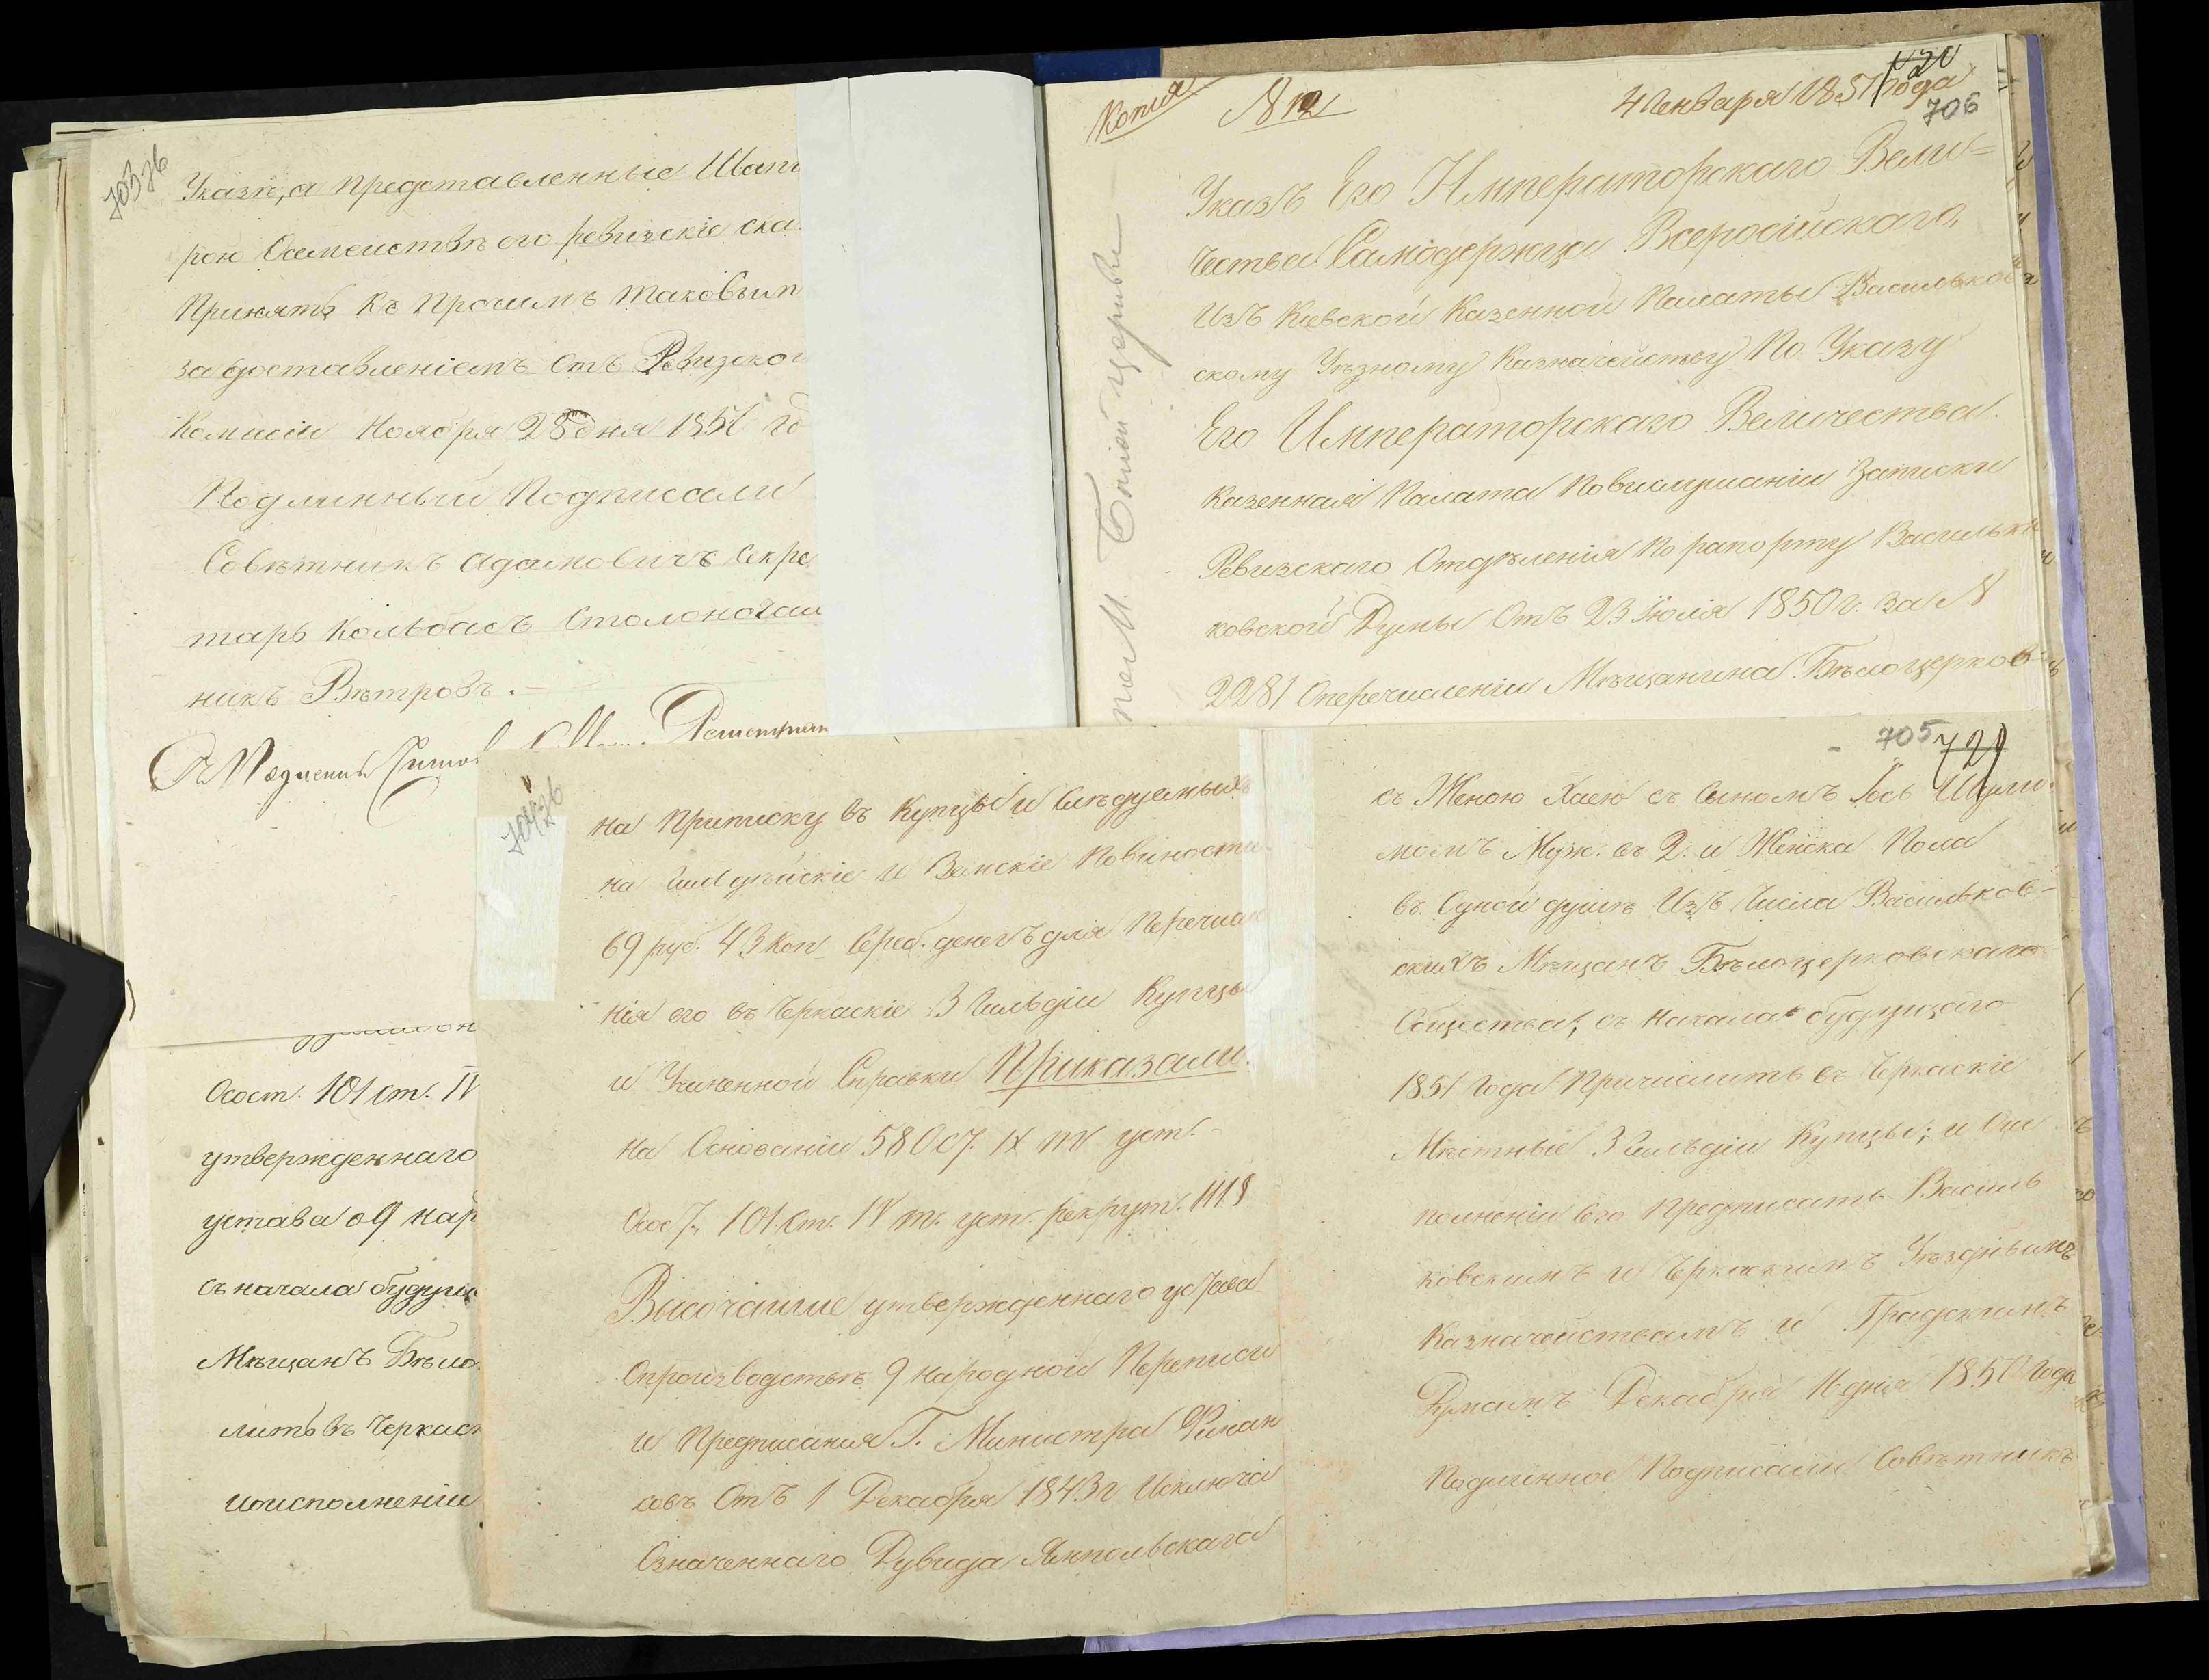 703 зв
Указъ, а представленные Шапи
рою Осемействѣ его ревизскіе ска
Принять къ прочимъ таковым
за доставленіемъ Отъ Ревизско
Комисіи Ноября 28 дня 1851 го
Подлинный Подписали
Совѣтникъ Адамовичъ Секре
тарь Кольбасъ Столонача
никъ Вѣтровъ.
Осост. 101 ст. IV
утвержденнаго
устава о 9 нар
съ начала будущ
Мѣщанъ Бѣло
лить въ Черкас
и о исполненіи
Копия
N 12
4 Генваря 1851 года
706
Указъ Его Императорскаго Вели=
чества Самодержца Всеросійскаго,
Изъ Кіевской Казенной Палаты Васильков
скому Уѣзному Казначейству По Указу
Его Императорскаго Величества
Казенная Палата Повыслушаніи Записки
Ревизскаго Отдѣленія По рапорту Васильк
ковской Думы Отъ 23 Іюля 1850 г. за N
2281 Оперечисленіи Мѣщанина Бѣлоцерков
704 зв
на Приписку въ Купцы и Слѣдуемыхъ
на Гилдѣйскіе и Земскіе Повиности
69 руб. 43 коп Сереб. денегъ для Перечисле
нія его въ Черкаскіе 3 Гильдіи Купцы
и Учиненной Справки Приказали.
На Основаніи 580 ст. IX т уст.
Осост., 101 ст. IV т. уст. рекрут. 111 §
Высочайше утвержденнаго устава
Опроизводствѣ 9 народной Переписи
и Предписания Г. Министра Финан
совъ Отъ 1 Декабря 1843 г Исключа
Означеннаго Дувида Ямпольскаго
705
721
съ Женою Хаею съ Сыномъ Іось Шули
момъ Муж. въ 2. и Женска Пола
въ Одной душѣ Изъ Числа Васильков-
скихъ Мѣщанъ Бѣлоцерковскаго
Общества; съ Начала будущаго
1851 Года Причислить въ Черкаскіе
Мѣстные 3 Гильдіи Купцы; и О ис
полненіи Сего Предписать Василь
ковскимъ и Черкаскимъ Уѣзднымъ
Казначействамъ и Градскимъ
Думамъ Декабря 16 дня 1850 Года
Подлинное Подписали Совѣтникъ